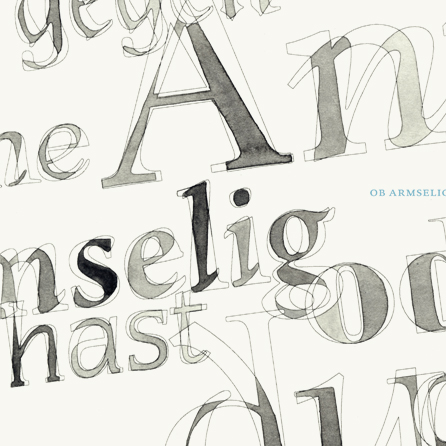 gegen
An
ne
OB ARMSELIG
mselig
od
hast
du